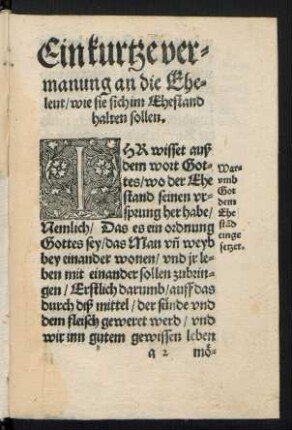 Ein kurtze ver-
manung an die Ehe-
leut/wie sie sich im Ehestand
halten sollen.
IHR wisset auß
dem wort Got-
tes/wo der Ehe
stand seinen vr-
sprung her habe/
Nemlich/ Das es ein ordnung
Gottes sey/das Man vñ weyb
bey einander wonen/ vnd jr le-
ben mit einander sollen zubrin-
gen/ Erstlich darumb/auff das
durch diß mittel/ der sünde vnd
dem fleisch geweret werd/ vnd
wir inn gutem gewissen leben
a 2 mö-
War-
vmb
Got
dem
Ehe/
städ
einge
setzet.